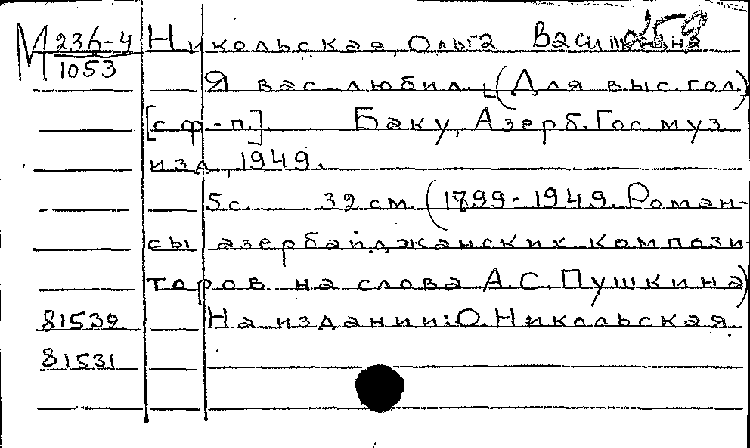 М 236-4 Никольская, Ольга Васильевна
1053
Я вас любил. (Для выс. гол.)
[с ф-п.] Баку, Азерб. Гос. муз.
изд., 1949.
5 с. 39 см. (1799-1949. Роман-
сы азербайджанских компози-
торов на слова А.С. Пушкина)
81539 На издании: О. Никольская.
81531